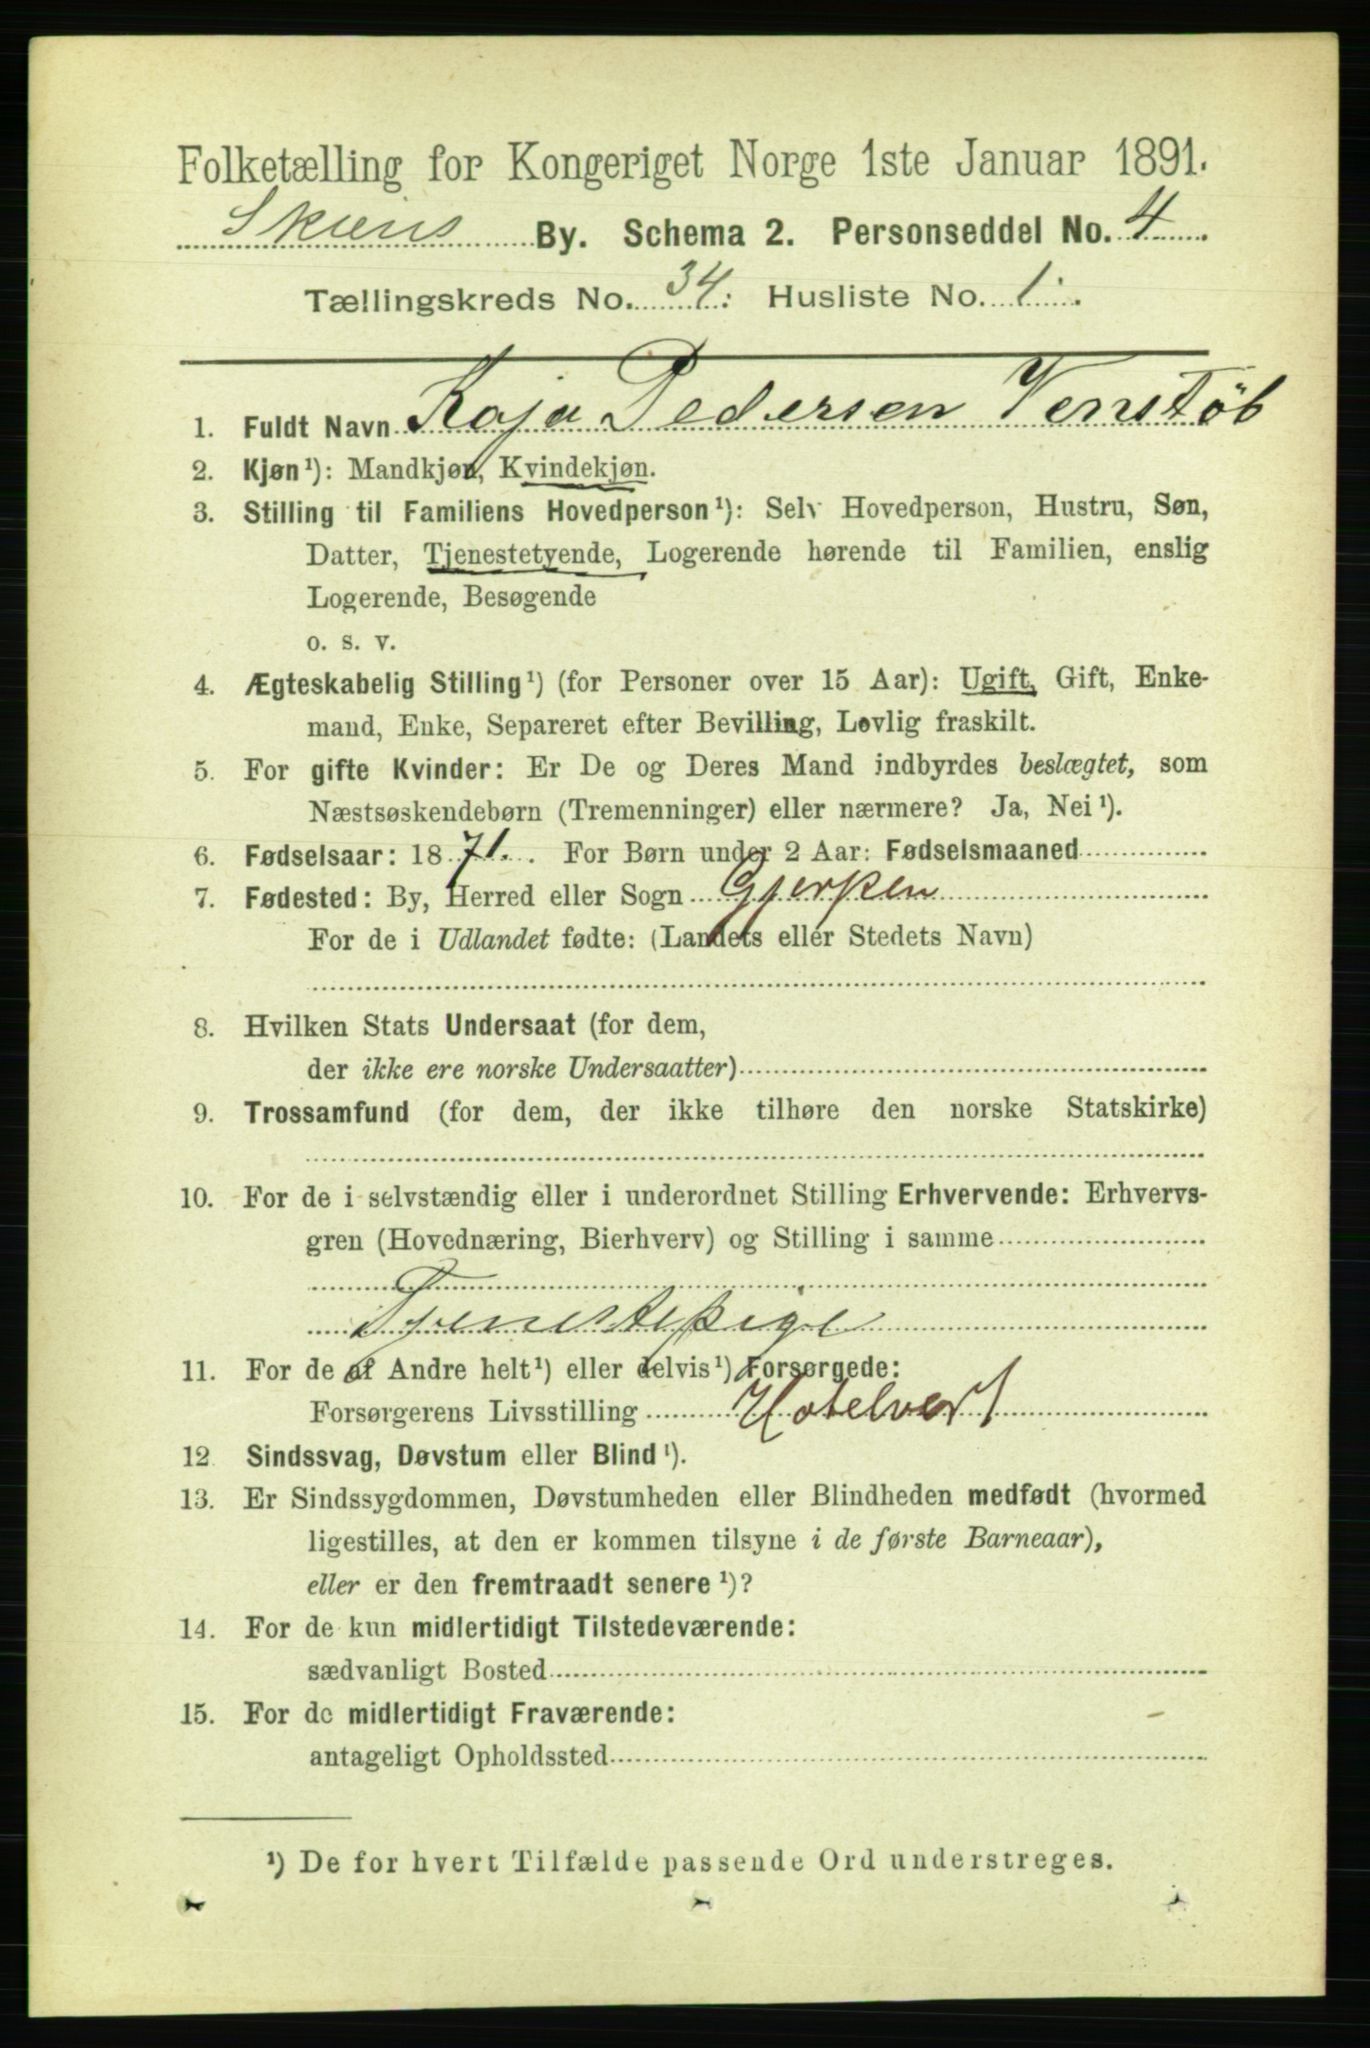 Folketælling for Kongeriget Norge 1ste Januar 1891.
Skiens By. Schema 2. Personseddel No. 4
Tællingskreds No. 34. Husliste No. 1.
1. Fuldt Navn Kaja Pedersen Venstøb
2. Kjøn¹): Mandkjøn, Kvindekjøn.
3. Stilling til Familiens Hovedperson¹): Selv Hovedperson, Hustru, Søn,
Datter, Tjenestetyende, Logerende hørende til Familien, enslig
Logerende, Besøgende
o. s. v.
4. Ægteskabelig Stilling¹) (for Personer over 15 Aar): Ugift, Gift, Enke-
mand, Enke, Separeret efter Bevilling, Lovlig fraskilt.
5. For gifte Kvinder: Er De og Deres Mand indbyrdes beslægtet, som
Næstsøskendebørn (Tremenninger) eller nærmere? Ja, Nei¹).
6. Fødselsaar: 1871. For Børn under 2 Aar: Fødselsmaaned
7. Fødested: By, Herred eller Sogn Gjerpen
For de i Udlandet fødte: (Landets eller Stedets Navn)
8. Hvilken Stats Undersaat (for dem,
der ikke ere norske Undersaatter)
9. Trossamfund (for dem, der ikke tilhøre den norske Statskirke)
10. For de i selvstændig eller i underordnet Stilling Erhvervende: Erhvervs-
gren (Hovednæring, Bierhverv) og Stilling i samme
Tjenestepige
11. For de af Andre helt¹) eller delvis¹) Forsørgede:
Forsørgerens Livsstilling Hotelvert
12 Sindssvag, Døvstum eller Blind¹).
13. Er Sindssygdommen, Døvstumheden eller Blindheden medfødt (hvormed
ligestilles, at den er kommen tilsyne i de første Barneaar),
eller er den fremtraadt senere¹)?
14. For de kun midlertidigt Tilstedeværende:
sædvanligt Bosted
15. For de midlertidigt Fraværende:
antageligt Opholdssted
¹) De for hvert Tilfælde passende Ord understreges.